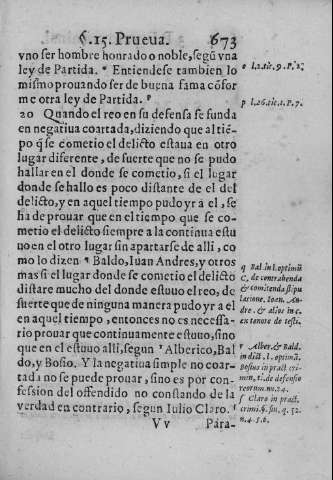 §.15. Prueua. 673
vno ser hombre honrado o noble, segũ vna
ley de Partida. º Entiendese tambien lo
mismo prouando ser de buena fama cõfor
me otra ley de Partida. ᵖ
20 Quando el reo en su defensa se funda
en negatiua coartada, diziendo que al tiẽ-
po q̃ se cometio el delicto estaua en otro
lugar diferente, de suerte que no se pudo
hallar en el donde se cometio, si el lugar
donde se hallo es poco distante de el del
delicto, y en aquel tiempo pudo yr a el, se
ha de prouar que en el tiempo que se co-
metio el delicto siempre a la continua estu
uo en el otro lugar sin apartarse de alli, co
mo lo dizen ᑫ Baldo, Iuan Andres, y otros
mas si el lugar donde se cometio el delicto
distare mucho del donde estuuo el reo, de
suerte que de ninguna manera pudo yr a el
en aquel tiempo, entonces no es necessa-
rio prouar que continuamente estuuo, sino
que en el estuuo alli, segun ʳ Alberico, Bal
do, y Bosio. Y la negatiua simple no coar-
tada no se puede prouar, sino es por con-
fession del offendido no constando de la
verdad en contrario, segun Iulio Claro. ˢ
Vv Para-
o l.2. tit. 9. P. 2.
p l.26. tit. 1. P. 7.
q Bal. in l. optimã
C. de contrahenda
& comitenda stipu
latione. Ioan. An-
dre. & alioe in c.
ex tenore de testi.
r Alber. & Bald.
in dict. l. optimã.
Bosius in pract crimi
min, ti. de defensio
reorum. nu. 24.
s Claro in pract.
crimi. §. fin. q. 52.
n. 4. 5. 6.